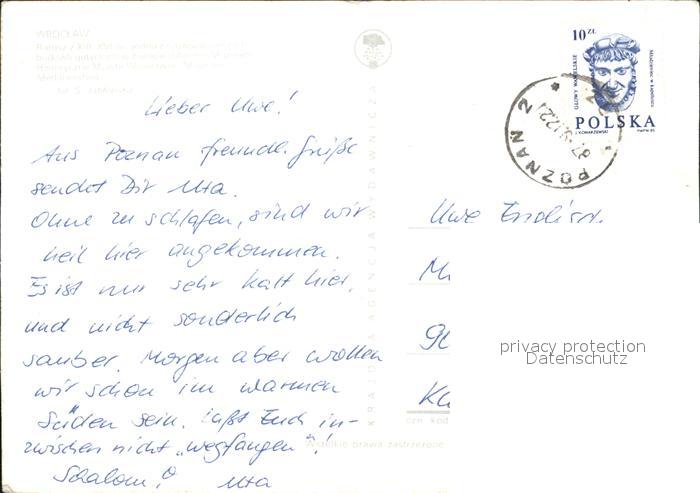 WROCŁAW
Ratusz z XIII-XVI w.
Lieber Uwe!
Aus Poznan freundl. Grüße
sendet Dir Uta.
Ohne zu schlafen, sind wir
heil hier angekommen.
Es ist nur sehr kalt hier,
und nicht sonderlich
sauber. Morgen aber wollen
wir schon im warmen
Süden sein. Laßt Euch in-
zwischen nicht „wegfangen"!
Schalom! Uta
KRAJOWA AGENCJA WYDAWNICZA
Wszelkie prawa zastrzeżone
10 ZŁ
GŁOWY WAWELSKIE
POLSKA
POZNAŃ 2
Uwe
privacy protection
Datenschutz